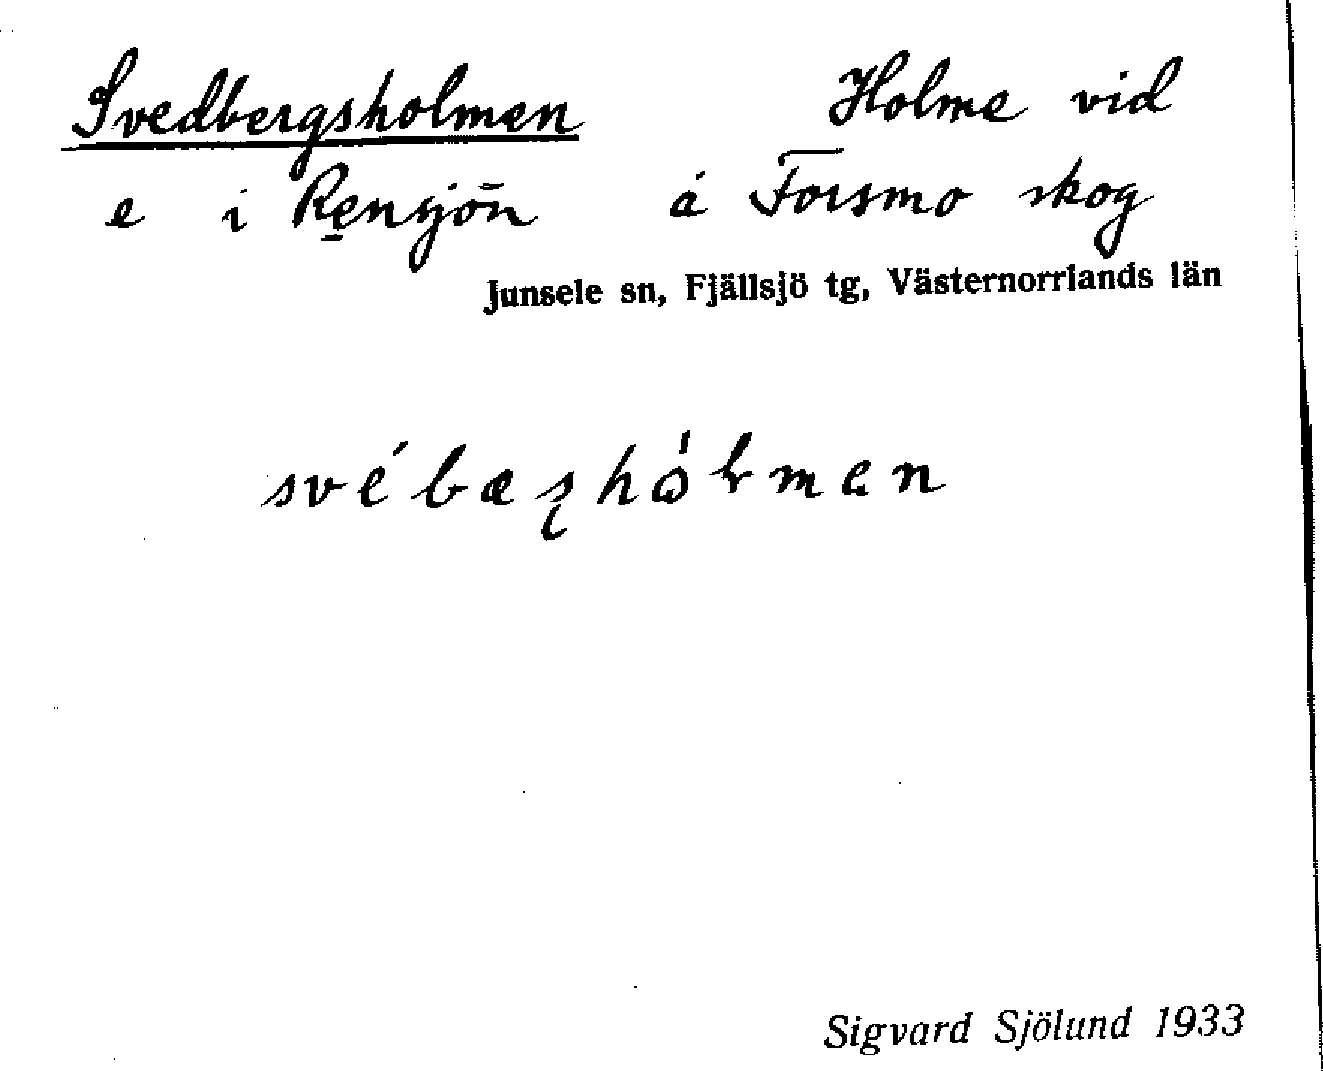 Svedbergsholmen Holme vid
e i Rensjön å Forsmo skog
Junsele sn, Fjällsjö tg, Västernorrlands län
Sigvard Sjölund 1933